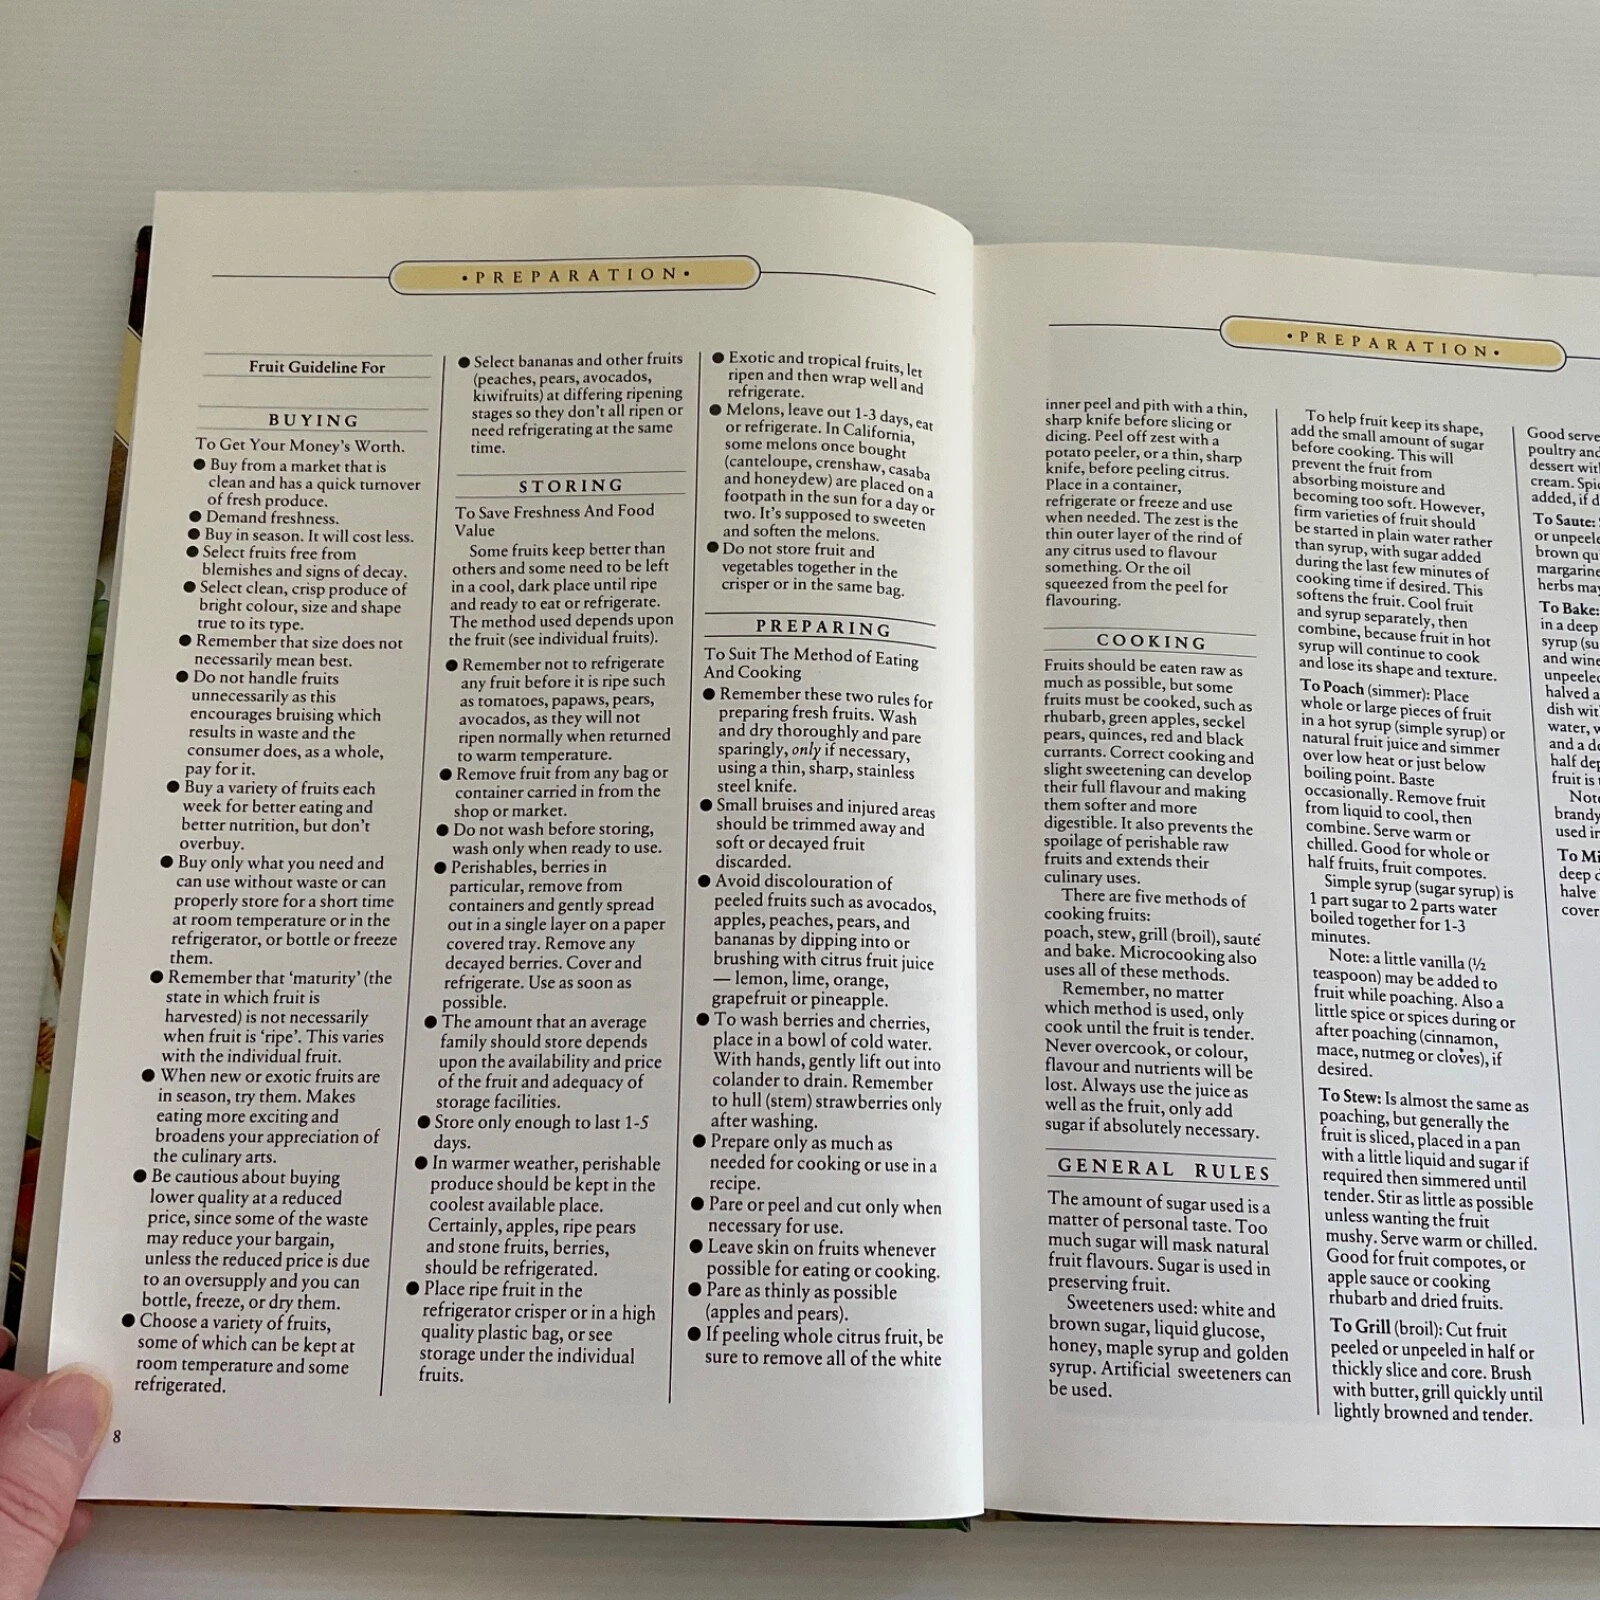 •PREPARATION•
Fruit Guideline For
BUYING
To Get Your Money's Worth.
● Buy from a market that is
clean and has a quick turnover
of fresh produce.
● Demand freshness.
● Buy in season. It will cost less.
● Select fruits free from
blemishes and signs of decay.
● Select clean, crisp produce of
bright colour, size and shape
true to its type.
● Remember that size does not
necessarily mean best.
● Do not handle fruits
unnecessarily as this
encourages bruising which
results in waste and the
consumer does, as a whole,
pay for it.
● Buy a variety of fruits each
week for better eating and
better nutrition, but don't
overbuy.
● Buy only what you need and
can use without waste or can
properly store for a short time
at room temperature or in the
refrigerator, or bottle or freeze
them.
● Remember that 'maturity' (the
state in which fruit is
harvested) is not necessarily
when fruit is 'ripe'. This varies
with the individual fruit.
● When new or exotic fruits are
in season, try them. Makes
eating more exciting and
broadens your appreciation of
the culinary arts.
● Be cautious about buying
lower quality at a reduced
price, since some of the waste
may reduce your bargain,
unless the reduced price is due
to an oversupply and you can
bottle, freeze, or dry them.
● Choose a variety of fruits,
some of which can be kept at
room temperature and some
refrigerated.
● Select bananas and other fruits
(peaches, pears, avocados,
kiwifruits) at differing ripening
stages so they don't all ripen or
need refrigerating at the same
time.
STORING
To Save Freshness And Food
Value
Some fruits keep better than
others and some need to be left
in a cool, dark place until ripe
and ready to eat or refrigerate.
The method used depends upon
the fruit (see individual fruits).
● Remember not to refrigerate
any fruit before it is ripe such
as tomatoes, papaws, pears,
avocados, as they will not
ripen normally when returned
to warm temperature.
● Remove fruit from any bag or
container carried in from the
shop or market.
● Do not wash before storing,
wash only when ready to use.
● Perishables, berries in
particular, remove from
containers and gently spread
out in a single layer on a paper
covered tray. Remove any
decayed berries. Cover and
refrigerate. Use as soon as
possible.
● The amount that an average
family should store depends
upon the availability and price
of the fruit and adequacy of
storage facilities.
● Store only enough to last 1-5
days.
● In warmer weather, perishable
produce should be kept in the
coolest available place.
Certainly, apples, ripe pears
and stone fruits, berries,
should be refrigerated.
● Place ripe fruit in the
refrigerator crisper or in a high
quality plastic bag, or see
storage under the individual
fruits.
● Exotic and tropical fruits, let
ripen and then wrap well and
refrigerate.
● Melons, leave out 1-3 days, eat
or refrigerate. In California,
some melons once bought
(canteloupe, crenshaw, casaba
and honeydew) are placed on a
footpath in the sun for a day or
two. It's supposed to sweeten
and soften the melons.
● Do not store fruit and
vegetables together in the
crisper or in the same bag.
PREPARING
To Suit The Method of Eating
And Cooking
● Remember these two rules for
preparing fresh fruits. Wash
and dry thoroughly and pare
sparingly, only if necessary,
using a thin, sharp, stainless
steel knife.
● Small bruises and injured areas
should be trimmed away and
soft or decayed fruit
discarded.
● Avoid discolouration of
peeled fruits such as avocados,
apples, peaches, pears, and
bananas by dipping into or
brushing with citrus fruit juice
— lemon, lime, orange,
grapefruit or pineapple.
● To wash berries and cherries,
place in a bowl of cold water.
With hands, gently lift out into
colander to drain. Remember
to hull (stem) strawberries only
after washing.
● Prepare only as much as
needed for cooking or use in a
recipe.
● Pare or peel and cut only when
necessary for use.
● Leave skin on fruits whenever
possible for eating or cooking.
● Pare as thinly as possible
(apples and pears).
● If peeling whole citrus fruit, be
sure to remove all of the white
8
•PREPARATION•
inner peel and pith with a thin,
sharp knife before slicing or
dicing. Peel off zest with a
potato peeler, or a thin, sharp
knife, before peeling citrus.
Place in a container,
refrigerate or freeze and use
when needed. The zest is the
thin outer layer of the rind of
any citrus used to flavour
something. Or the oil
squeezed from the peel for
flavouring.
COOKING
Fruits should be eaten raw as
much as possible, but some
fruits must be cooked, such as
rhubarb, green apples, seckel
pears, quinces, red and black
currants. Correct cooking and
slight sweetening can develop
their full flavour and making
them softer and more
digestible. It also prevents the
spoilage of perishable raw
fruits and extends their
culinary uses.
There are five methods of
cooking fruits:
poach, stew, grill (broil), sauté
and bake. Microcooking also
uses all of these methods.
Remember, no matter
which method is used, only
cook until the fruit is tender.
Never overcook, or colour,
flavour and nutrients will be
lost. Always use the juice as
well as the fruit, only add
sugar if absolutely necessary.
GENERAL RULES
The amount of sugar used is a
matter of personal taste. Too
much sugar will mask natural
fruit flavours. Sugar is used in
preserving fruit.
Sweeteners used: white and
brown sugar, liquid glucose,
honey, maple syrup and golden
syrup. Artificial sweeteners can
be used.
To help fruit keep its shape,
add the small amount of sugar
before cooking. This will
prevent the fruit from
absorbing moisture and
becoming too soft. However,
firm varieties of fruit should
be started in plain water rather
than syrup, with sugar added
during the last few minutes of
cooking time if desired. This
softens the fruit. Cool fruit
and syrup separately, then
combine, because fruit in hot
syrup will continue to cook
and lose its shape and texture.
To Poach (simmer): Place
whole or large pieces of fruit
in a hot syrup (simple syrup) or
natural fruit juice and simmer
over low heat or just below
boiling point. Baste
occasionally. Remove fruit
from liquid to cool, then
combine. Serve warm or
chilled. Good for whole or
half fruits, fruit compotes.
Simple syrup (sugar syrup) is
1 part sugar to 2 parts water
boiled together for 1-3
minutes.
Note: a little vanilla (½
teaspoon) may be added to
fruit while poaching. Also a
little spice or spices during or
after poaching (cinnamon,
mace, nutmeg or cloves), if
desired.
To Stew: Is almost the same as
poaching, but generally the
fruit is sliced, placed in a pan
with a little liquid and sugar if
required then simmered until
tender. Stir as little as possible
unless wanting the fruit
mushy. Serve warm or chilled.
Good for fruit compotes, or
apple sauce or cooking
rhubarb and dried fruits.
To Grill (broil): Cut fruit
peeled or unpeeled in half or
thickly slice and core. Brush
with butter, grill quickly until
lightly browned and tender.
Good serve
poultry and
dessert wit
cream. Spic
added, if d
To Saute:
or unpeele
brown qu
margarine
herbs may
To Bake:
in a deep
syrup (su
and wine
unpeeled
halved a
dish wit
water, w
and a do
half dep
fruit is
Note
brandy
used in
To Mi
deep d
halve
cover